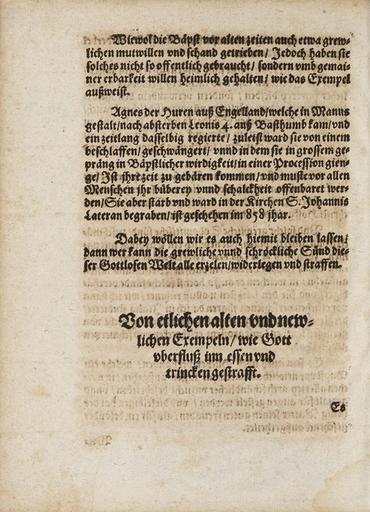 Wiewol die Bäpst vor alten zeiten auch etwa grew-
lichen mutwillen vnd schand getrieben/ Jedoch haben sie
solches nicht so offentlich gebraucht/ sondern vmb gemai-
ner erbarkeit willen heimlich gehalten/ wie das Exempel
außweist.
Agnes der Huren auß Engelland/ welche in Manns
gestalt/ nach absterben Leonis 4. anß Basthumb kam/ vnd
ein zeitlang dasselbig regierte/ zuleist ward sie von einem
beschlaffen/ geschwängert/ vnnd in dem sie in grossem ge-
präng in Bäpstlicher wirdigkeit/ in einer Procession gien-
ge/ Ist jhr zeit zu gebären kommen/ vnd muste vor allen
Menschen jhr büberey vnnd schalckheit offenbaret wer-
den/ Sie aber starb vnd ward in der Kirchen S. Johannis
Lateran begraben/ ist geschehen im 858 jhar.
Dabey wöllen wir es auch hiemit bleiben lassen/
dann wer kann die grewliche vnnd schröckliche Sünd die-
ser Gottlosen Welt alle erzelen/ widerlegen vnd straffen.
Von etlichen alten vnd new-
lichen Exempeln/ wie Gott
vberfluß im essen vnd
trincken gestrafft.
Es